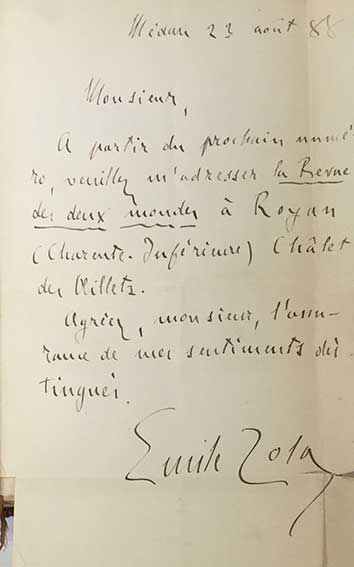 Médan 23 août 88
Monsieur,
A partir du prochain numé-
ro, veuillez m'adresser la Revue
des deux mondes à Royan
(Charente-Inférieure) Châlet
des Œillets.
Agréez, monsieur, l'assu-
rance de mes sentiments dis-
tingués.
Emile Zola